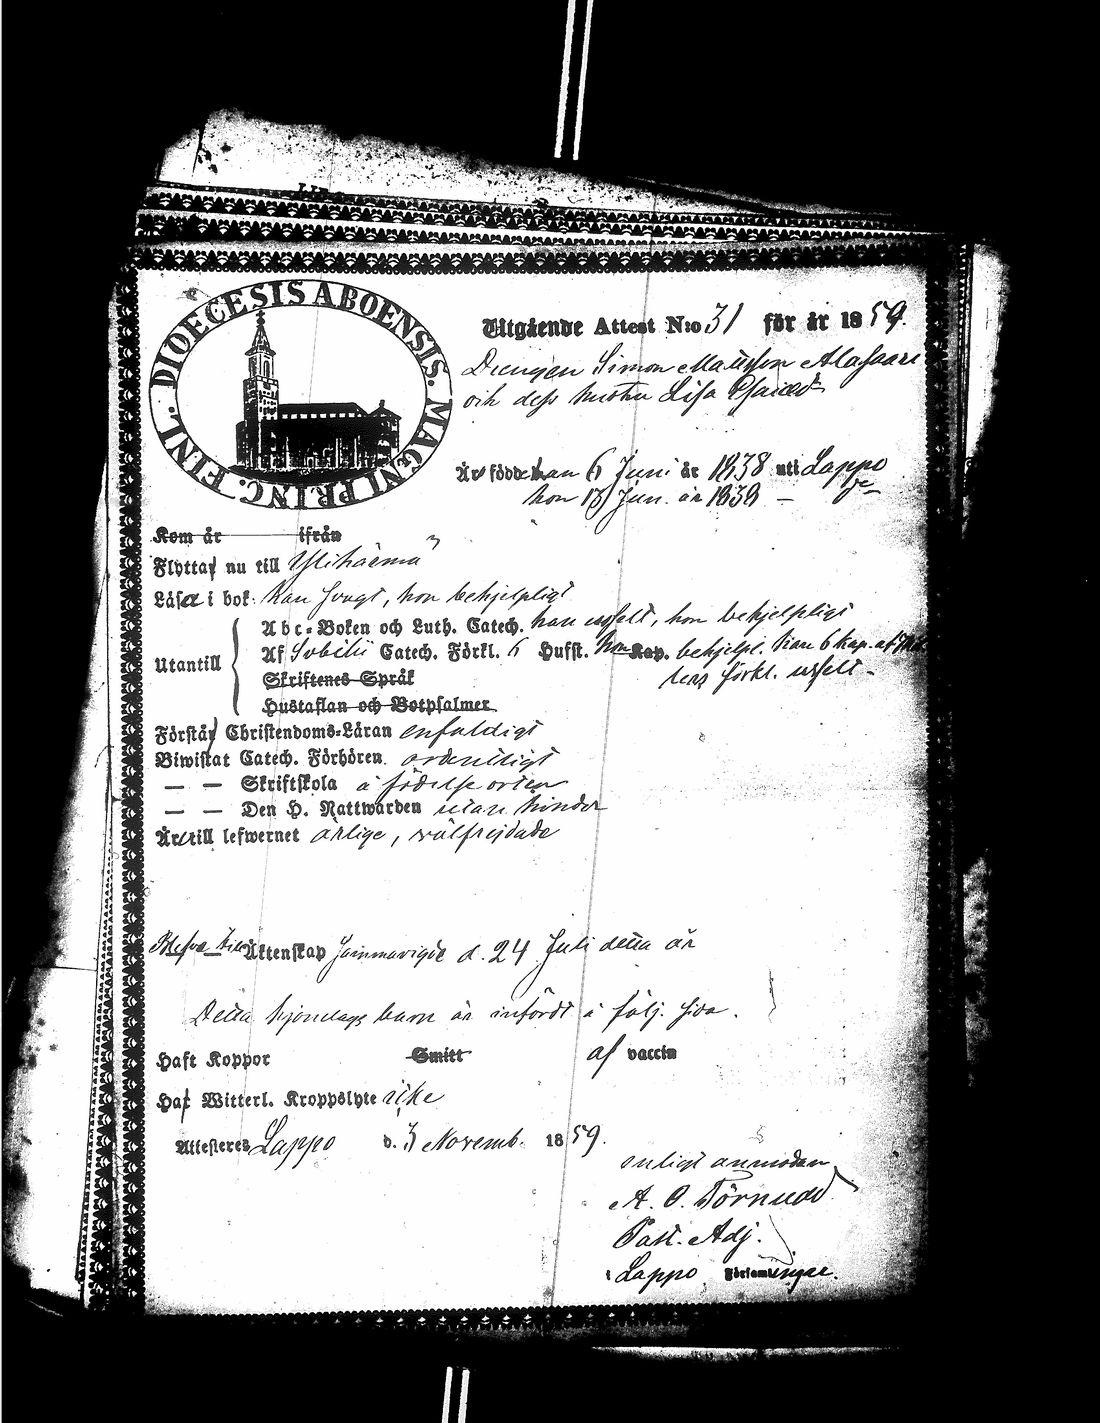 DIOECESIS ABOENSIS. MAGNI PRINC. FINL.
Utgående Attest N:o 31 för år 1859.
Drengen Simon Mattsson Alasaari
och dess hustru Lisa
Är födde han 6 Juni år 1838 uti Lappo
hon 13 Jun. år 1838 —
Kom år ifrån
Flyttar nu till Ylihärmä
Läsa i bok: han svagt, hon behjelpligt
Abc-Boken och Luth. Catech. han uselt, hon behjelpligt
Utantill
Af Svebilii Catech. Förkl. 6 Hufst. hon Kap. behjelpl. han 6 kap. af
förkl. uselt -
Skriftenes Språk
Hustaflan och Botpsalmer
Förstår Christendoms-Läran enfaldigt
Biwistat Catech. Förhören ordentligt
— — Skriftskola å födelse orten
— — Den H. Nattwarden utan hinder
Äro till lefwernet ärlige, välfrejdade
Äktenskap sammanvigde d. 24 Juli detta år
Detta hjonelags barn är infördt å följ. sida.
Haft Koppor Smitt af vaccin
Haf Witterl. Kroppslyte icke
Attesteres Lappo d. 3 Novemb. 1859.
enligt anmodan
A. O. Törnudd
Past. Adj.
Lappo Församlingar.